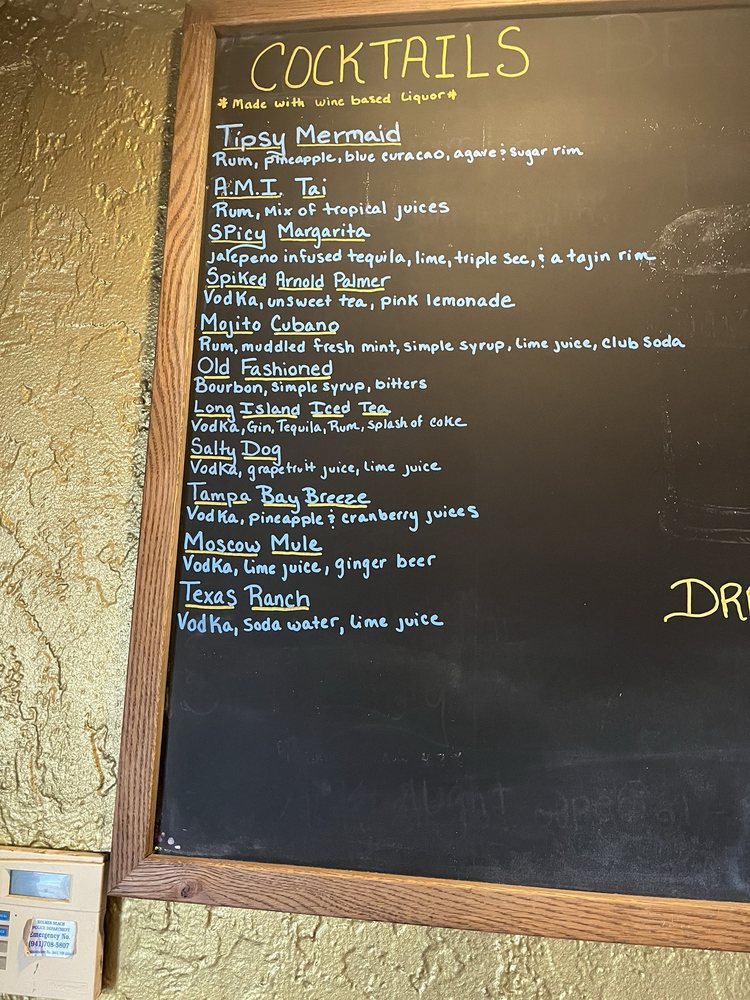 COCKTAILS
*Made with wine based liquor*
Tipsy Mermaid
Rum, pineapple, blue curacao, agave & sugar rim
A.M.I. Tai
Rum, mix of tropical juices
Spicy Margarita
jalepeno infused tequila, lime, triple sec, & a tajin rim
Spiked Arnold Palmer
Vodka, unsweet tea, pink lemonade
Mojito Cubano
Rum, muddled fresh mint, simple syrup, lime juice, club soda
Old Fashioned
Bourbon, simple syrup, bitters
Long Island Iced Tea
Vodka, Gin, Tequila, Rum, splash of coke
Salty Dog
Vodka, grapefruit juice, lime juice
Tampa Bay Breeze
Vodka, pineapple & cranberry juices
Moscow Mule
Vodka, lime juice, ginger beer
Texas Ranch
Vodka, soda water, lime juice
DRI
HOLMES BEACH
POLICE DEPARTMENT
Emergency No.
(941)708-5807